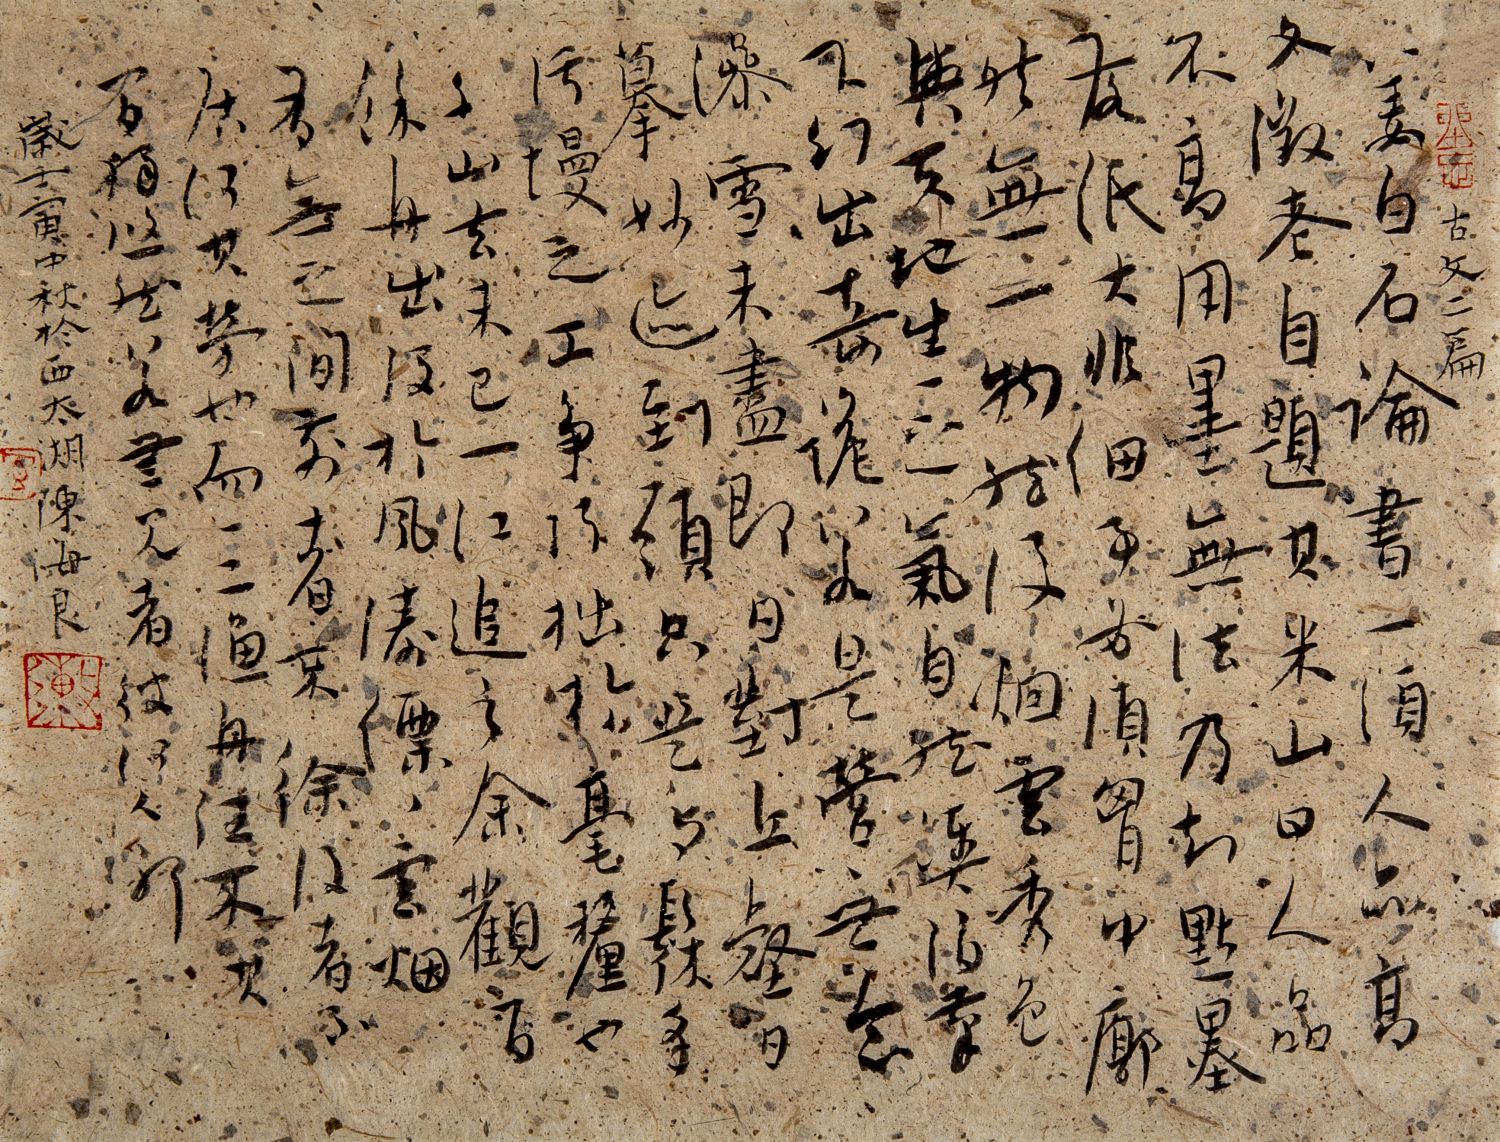 古文二篇
姜白石論書一須人品高
文徵老自題其米山曰人品
不高用墨無法乃知點墨
落紙大非細事必須胸中廓
然無一物然後烟雲秀色
與天地生生之氣自然湊泊筆
下幻出奇詭若是營々世念
澡雪未盡即日對丘壑日
摹妙迹到頭只是與髹采
圬墁之工爭巧拙於毫釐也
千山去未已一江追之余觀百
餘舟出没於風濤縹々雲烟
有無之間前者莫徐後者不
居何其勞也而三漁舟往來其
間獨悠然若無見者彼何人耶
歲壬寅中秋於西太湖陳海良